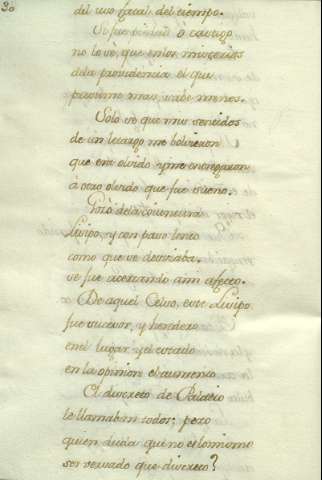 30
del uso fatal del tiempo.
Si fue piedad ò castigo
no lo sè, que en los misterios
dela providencia el que
presume mas, sabe menos.
Solo sè que mis sentidos
de un letargo me bolvieron
que era olvido y me entregaron
à otro olvido que fue sueño.
Gozò dela coiuntura
Lisipo, y con passo lento
como que se desviaba
se fue acercando à mi afecto.
De aquel Celso, este Lisipo
fue sucesor, y heredero
en el lugar y el estado
en la opinion el aumento
El discreto de Palacio
le llamaban todos; pero
quien duda que no es lo mismo
ser privado que discreto?